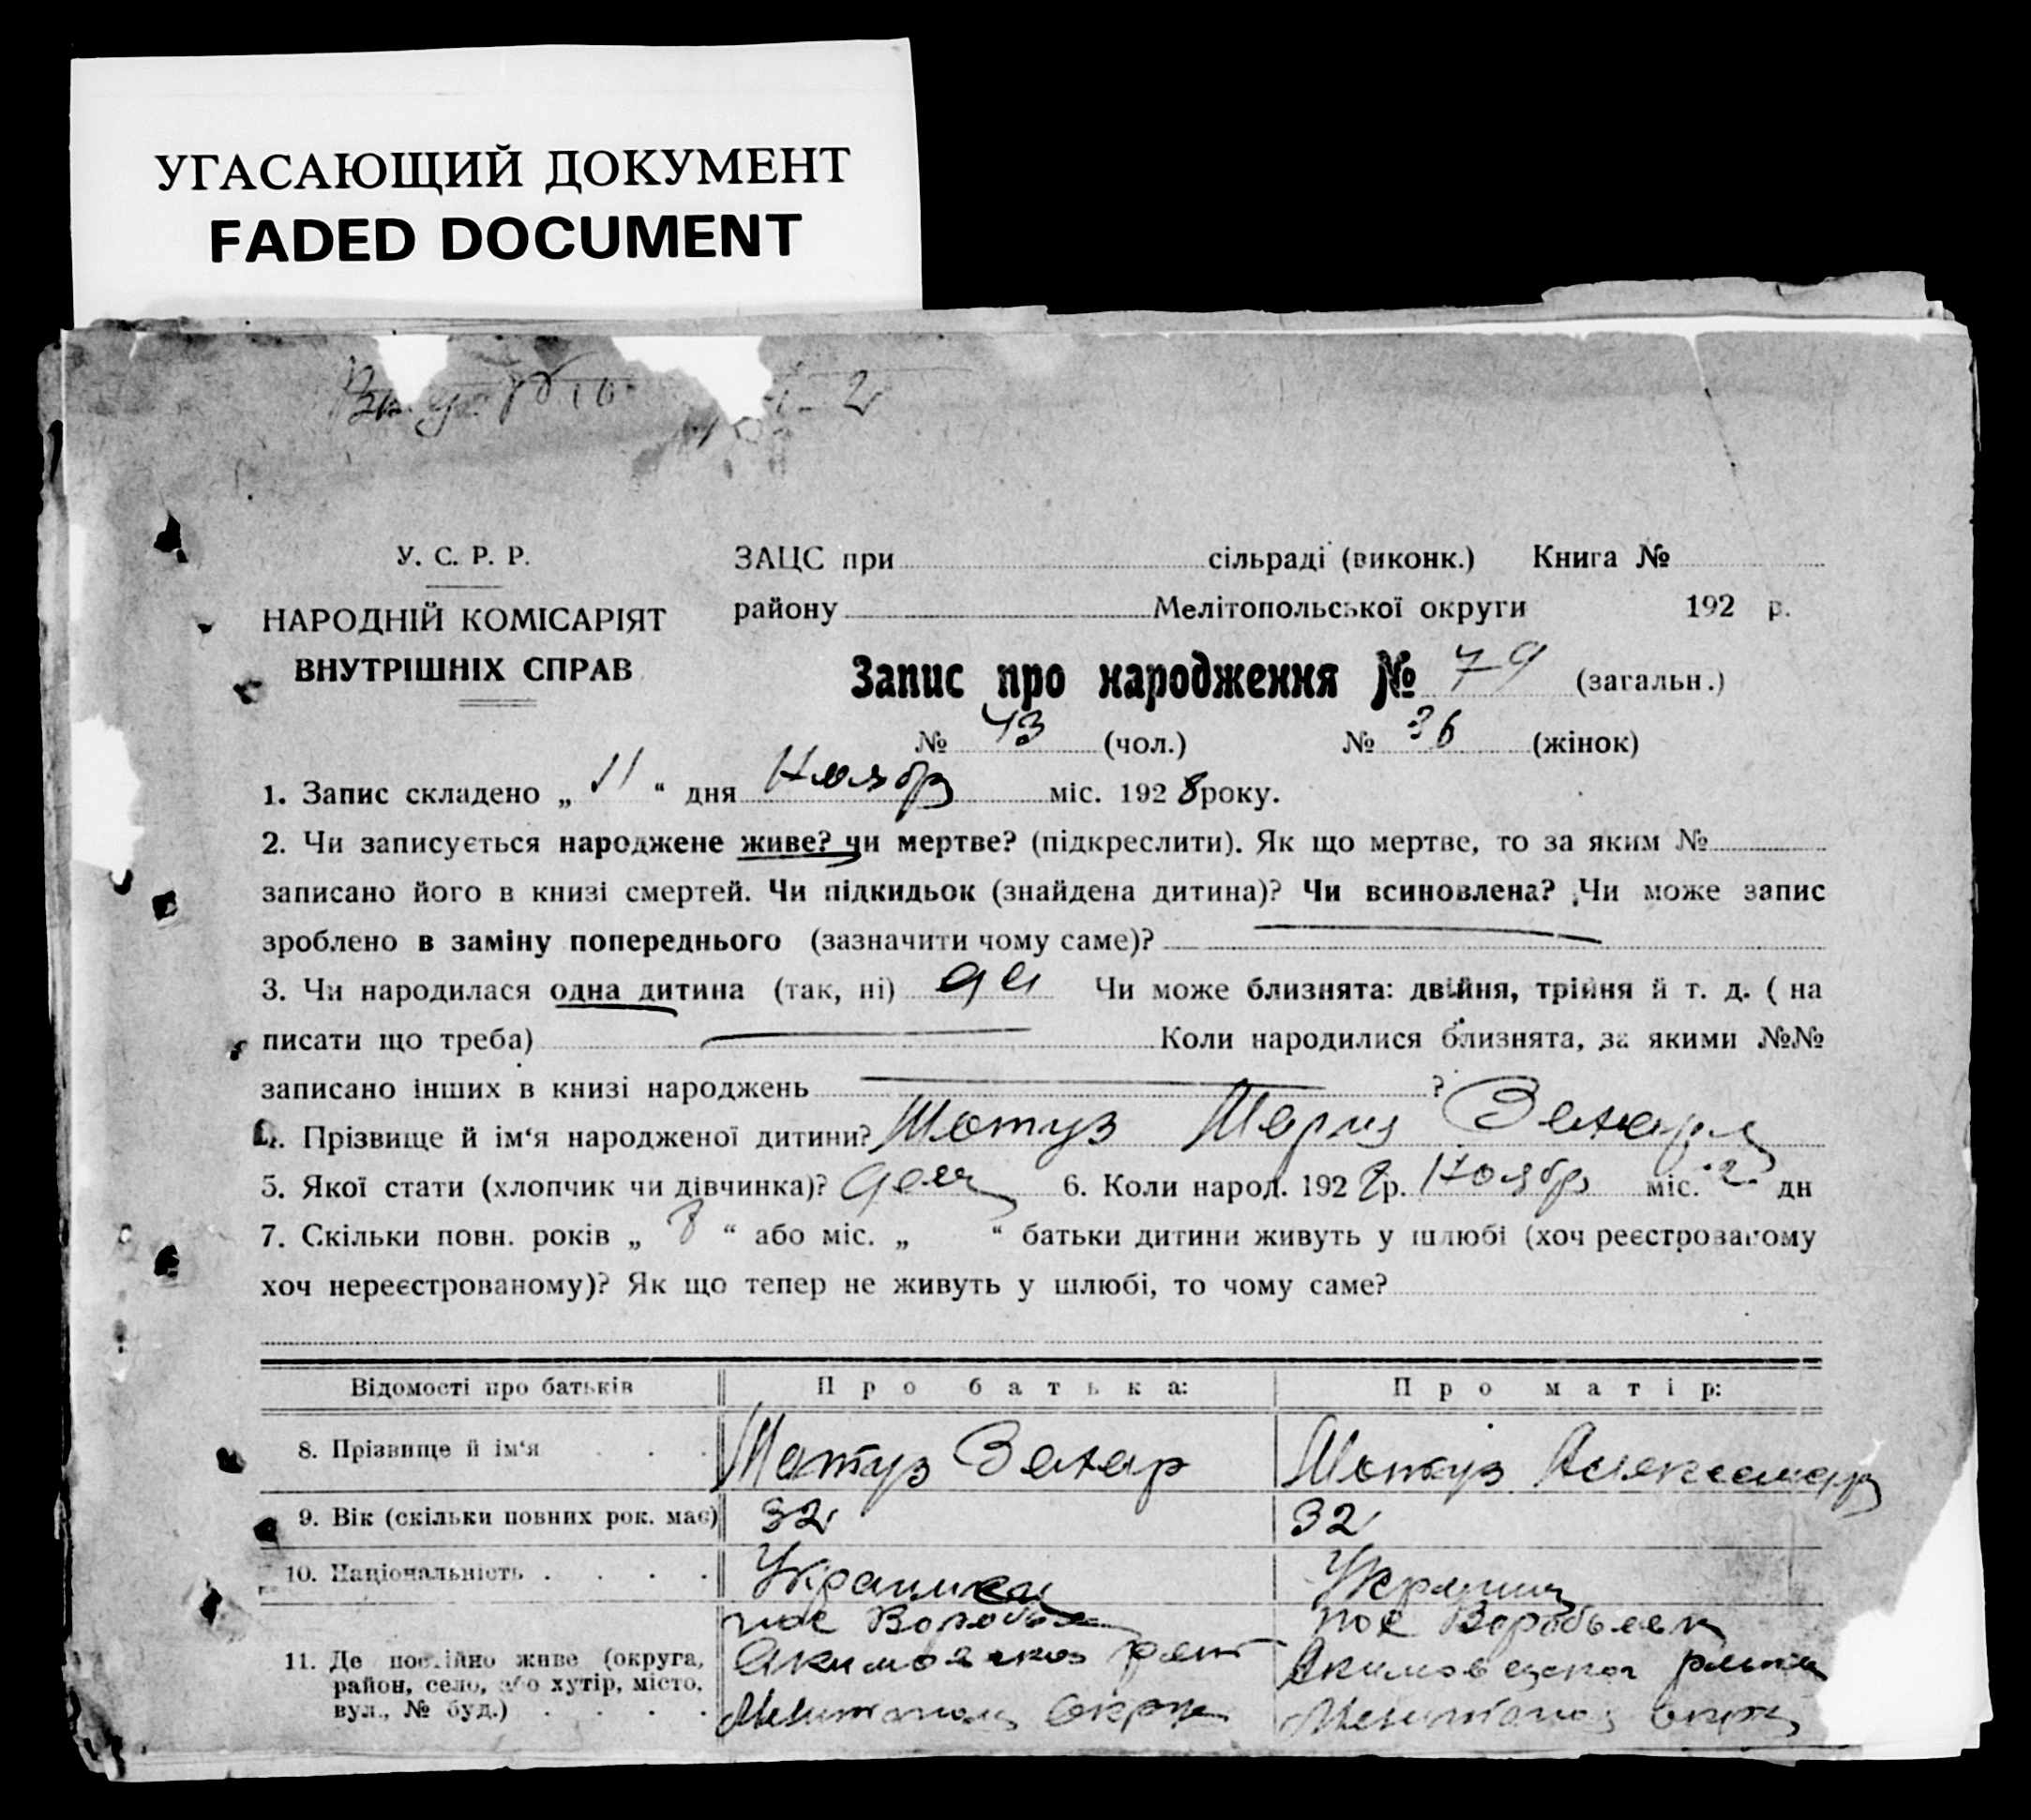 УГАСАЮЩИЙ ДОКУМЕНТ
FADED DOCUMENT
У. С. Р. Р.
НАРОДНІЙ КОМІСАРІЯТ
ВНУТРІШНІХ СПРАВ
ЗАЦС при сільраді (виконк.) Книга №
району Мелітопольської округи 192 р.
Запис про народження № 79 (загальн.)
№ 43 (чол.) № 36 (жінок)
1. Запис складено „ 11 “ дня Ноябр міс. 1928 року.
2. Чи записується народжене живе? чи мертве? (підкреслити). Як що мертве, то за яким №
записано його в книзі смертей. Чи підкидьок (знайдена дитина)? Чи всиновлена? Чи може запис
зроблено в заміну попереднього (зазначити чому саме)?
3. Чи народилася одна дитина (так, ні) Чи може близнята: двійня, трійня й т. д. ( на
писати що треба) Коли народилися близнята, за якими №№
записано інших в книзі народжень ?
4. Прізвище й ім‘я народженої дитини? Мотуз Мария
5. Якої стати (хлопчик чи дівчинка)? 6. Коли народ. 1928 р. Ноябр міс. 2 дн
7. Скільки повн. років „ 8 “ або міс. „ “ батьки дитини живуть у шлюбі (хоч реєстрованому
хоч нереєстрованому)? Як що тепер не живуть у шлюбі, то чому саме?
Відомості про батьків Про батька: Про матір:
8. Прізвище й ім‘я . . . Мотуз Захар Мотуз
9. Вік (скільки повних рок. має) 32 32
10. Національність . . . .
11. Де постійно живе (округа,
район, село, або хутір, місто,
вул., № буд.) . . . .